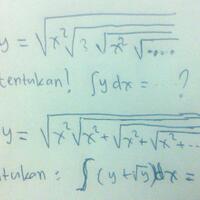 y = √(x² √(? √(x² √(....
tentukan! ∫y dx = ...?
y = √(x² √(x² + √(x² + √(x² + ...
tukan : ∫(y + √y) dx =